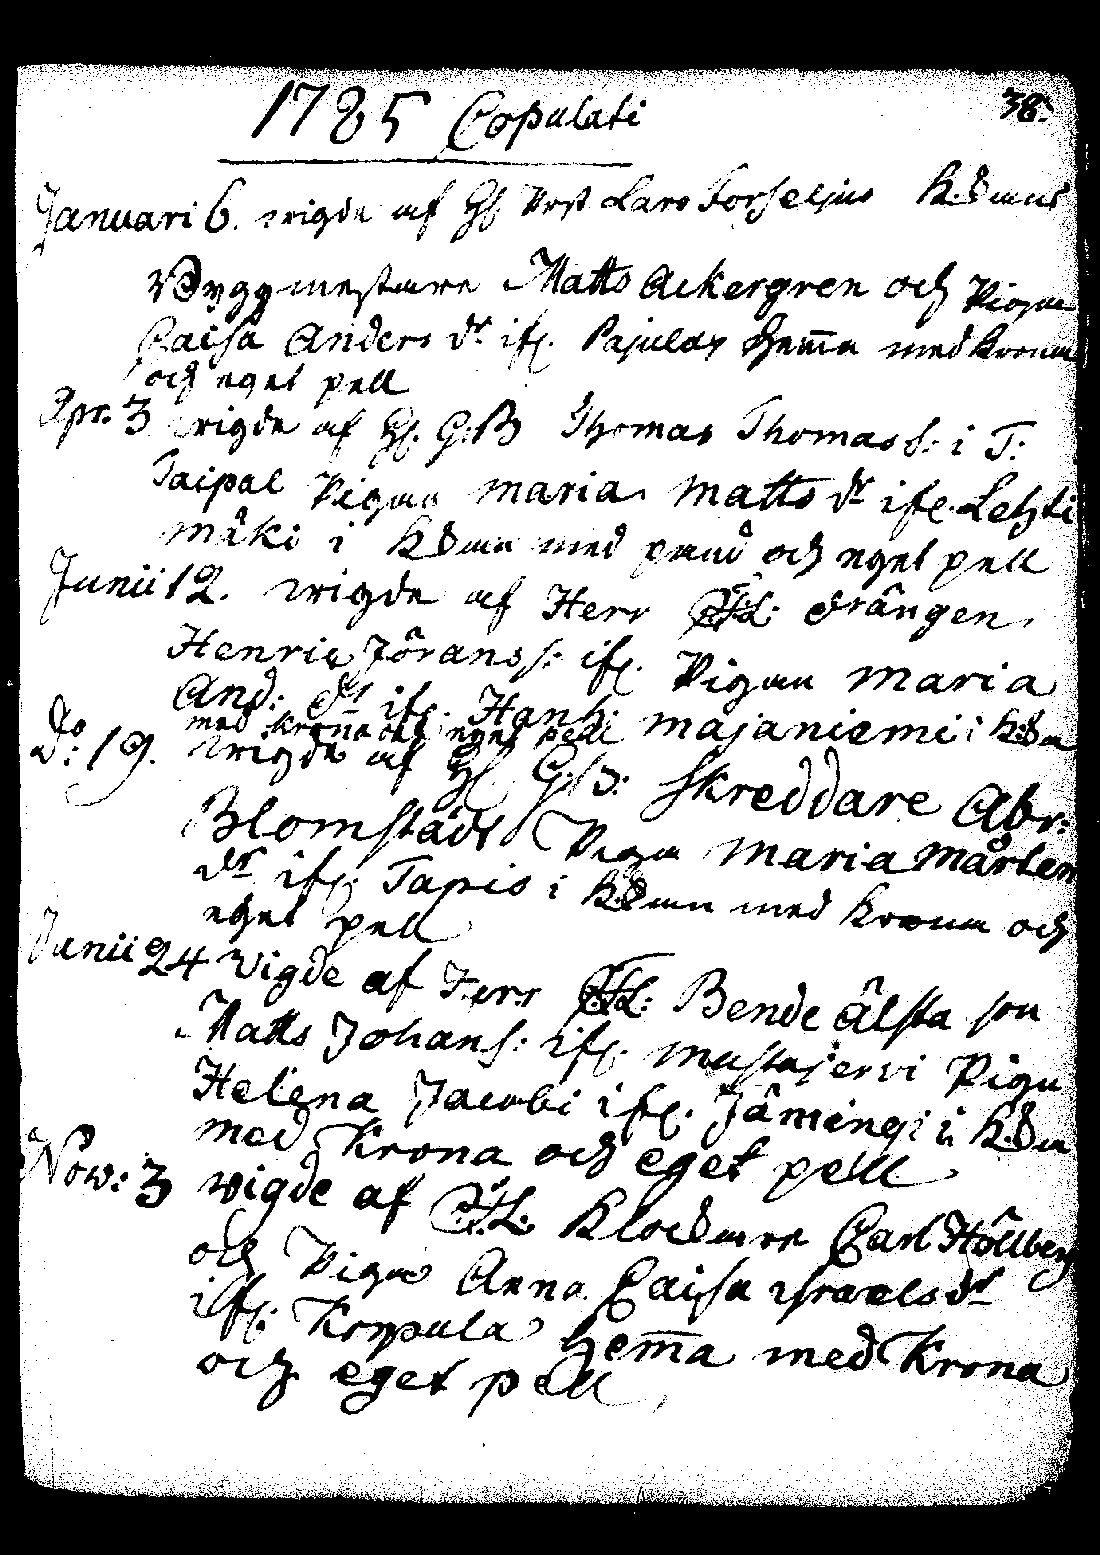 1785 Copulati 38.
Januari 6. wigde af H Past Lars Forseljus
Byggmestare Matts Ackergren och Pigan
Caisa Anders dr ifr. Pajulax hema med krona
och eget pell
Apr. 3 wigde af H. G:B Thomas Thomas S: i T:
Taipal Pigan Maria Matts dr ifr. Lehti
mäki i med pund och eget pell
Junii 12. wigde af Herr drängen
Henric Jörans s: ifr. Pigan Maria
And: dr ifr. majaniemi i
med krona och eget pell
Do: 19. wigde af H G:B: Skreddare Abr:
Blomstädt Pigan Maria Mårtens
dr ifr. Tapis i med krona och
eget pell
Junii 24 Vigde af Herr Bende älsta son
Matts Johans: ifr. mustajervi Pigan
Helena Jacobi ifr. Jämingi i
med Krona och eget pell
Now: 3 wigde af Klockare Carl Hållberg
och Pigan Anna Caisa israelsdr
ifr. Korpula hema med Krona
och eget pell